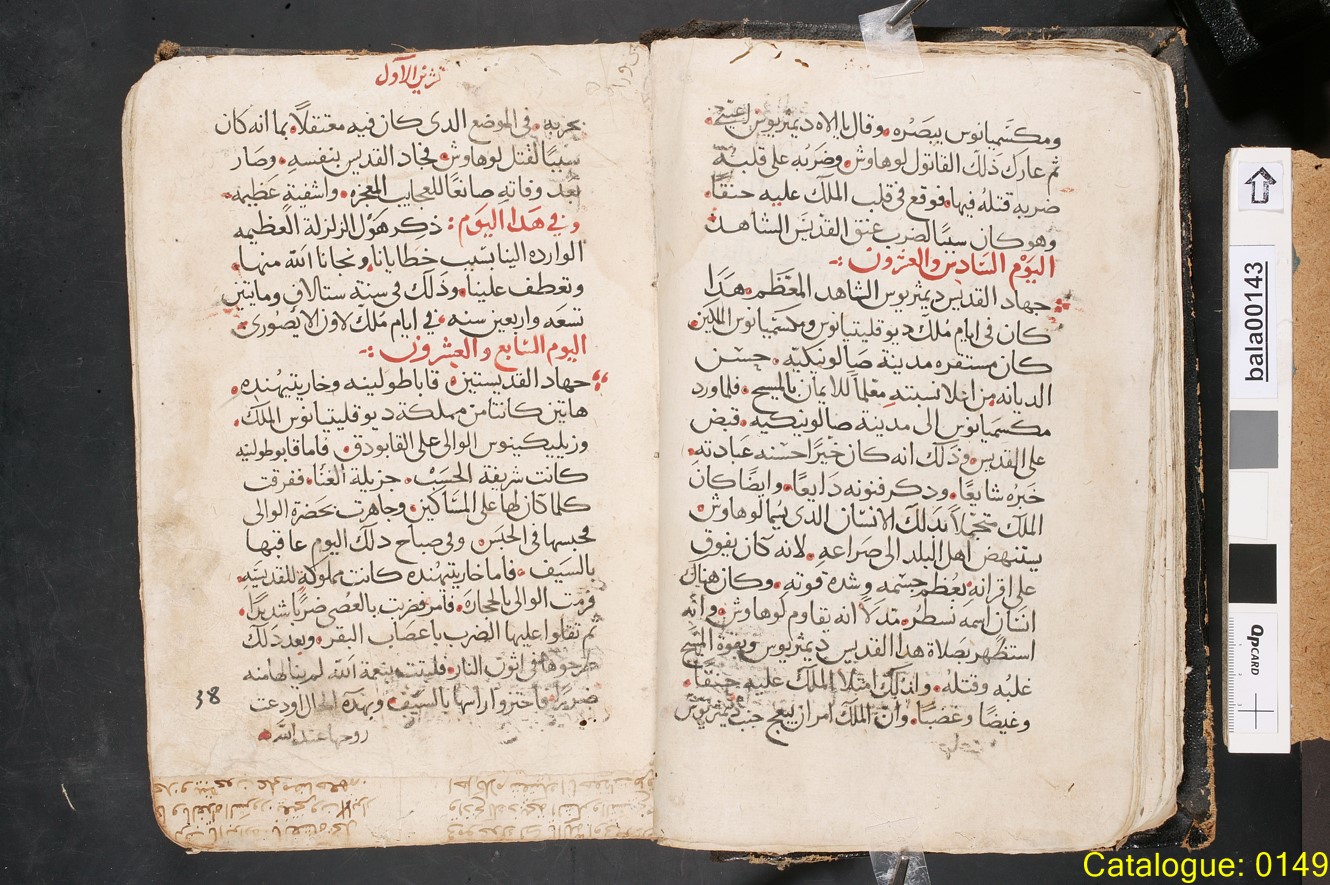 ومكسميانوس يبصره. وقال يا الاه ديمتريوس اعيني.
ثم عارك ذلك القاتول لوهاوش. وضربه على قلبه
ضربه قتله فيها. فوقع في قلب الملك عليه حنقا.
وهو كان سببا لضرب عنق القديس الشاهد
اليوم السادس والعشرون :-
جهاد القديس ديمتريوس الشاهد المعظم. هذا
كان في ايام ملك ديوقليتيانوس ومكسميانوس الملكين
كان مستقره مدينة صالونيكيه. حسن
الديانه من اعلا نسبته معلما للايمان بالمسيح. فلما ورد
مكسميانوس الى مدينة صالونيكيه. قبض
على القديس. وذلك انه كان خيرا حسنه عبادته.
خبره شايعا. ودكر فنونه دايعا. وايضا كان
الملك متحيلا بدلك الانسان الذي يسما لوهاوش
يستنهض اهل البلد الى صراعه. لانه كان يفوق
على اقرانه بعظم جسمه وشدة قوته. وكان هناك
انسان اسمه نسطر. انه يقاوم لوهاوش. وانه
استظهر بصلاة هدا القديس ديمتريوس وبقوة المسيح
غلبه وقتله. ولذلك امتلا الملك عليه حنقا.
وغيضا وغضبا. وان الملك امر ان يبعج جنب ديمتريوس
تشرين الاول
بحربه. في الموضع الدي كان فيه معتقلا. بما انه كان
سببا لقتل لوهاوش. فجاد القديس بنفسه. وصار
بعد وفاته صانعا للعجايب المعجزه. واشفية عظيمه.
وفي هدا اليوم: ذكر هول الزلزلة العظيمه
الوارده الينا بسبب خطايانا ونجانا الله منها.
وتعطف علينا. وذلك في سنة ستالاف ومايتين
تسعه واربعين سنه. في ايام ملك لاون الايصوري
اليوم السابع والعشرون :-
جهاد القديستين قاباطولينه وخاريتيهنده.
هاتين كانتا من مملكة ديوقليتيانوس الملك.
وزيليكينوس الوالي على القابودق. فاما قابوطولينه
كانت شريفة الحسب. جزيلة الغنا. ففرقت
كلما كان لها على المساكين. وجاهرت بحضرة الوالي
فحبسها في الحبس. وفي صباح دلك اليوم عاقبها
بالسيف. فاما خاريتيهنده كانت مملوكة للقديسه.
فرمت الوالي بالحجاره. فامر فضربت بالعصي ضربا شديدا.
ثم نقلوا عليها الضرب باعصاب البقر. وبعد دلك
طرحوها في اتون النار. فلبثت بنعمة الله لم ينالها منه
ضررا. فاحتزوا راسها بالسيف. وبهده الحال اودعت
روحها عند الله
38
bala00143
QPCARD
Catalogue: 0149